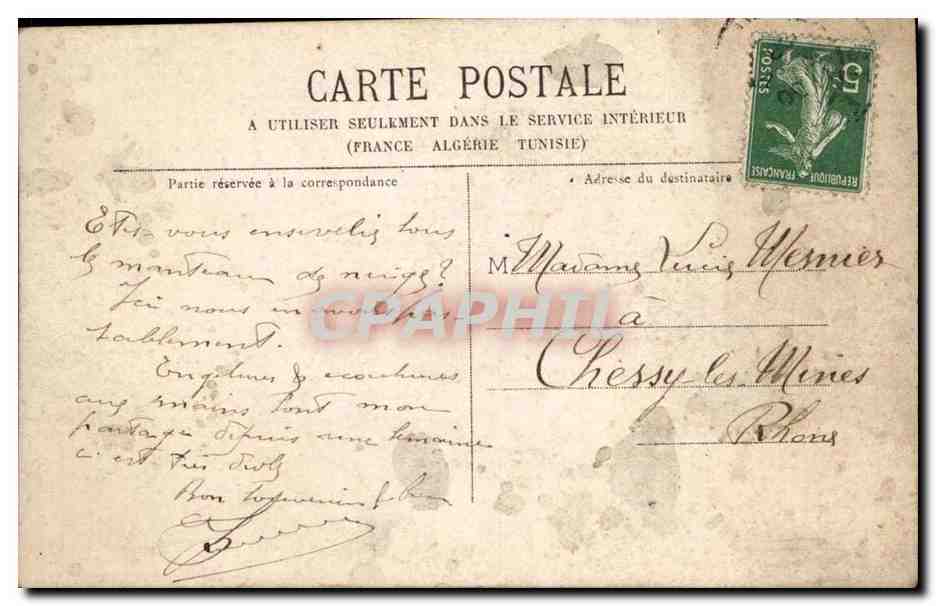 CARTE POSTALE
A UTILISER SEULEMENT DANS LE SERVICE INTÉRIEUR
(FRANCE ALGÉRIE TUNISIE)
5
POSTES
RÉPUBLIQUE FRANÇAISE
Partie réservée à la correspondance
Adresse du destinataire
Etes-vous ensevelis sous
le manteau de neige?
Ici nous en avons
Engelures & écorchures
aux mains sont mon
partage depuis une semaine
c'est très drôle
Bon souvenir
M Madame Lucie Mesnier
à
Chessy-les-Mines
Rhône
CPAPHIL